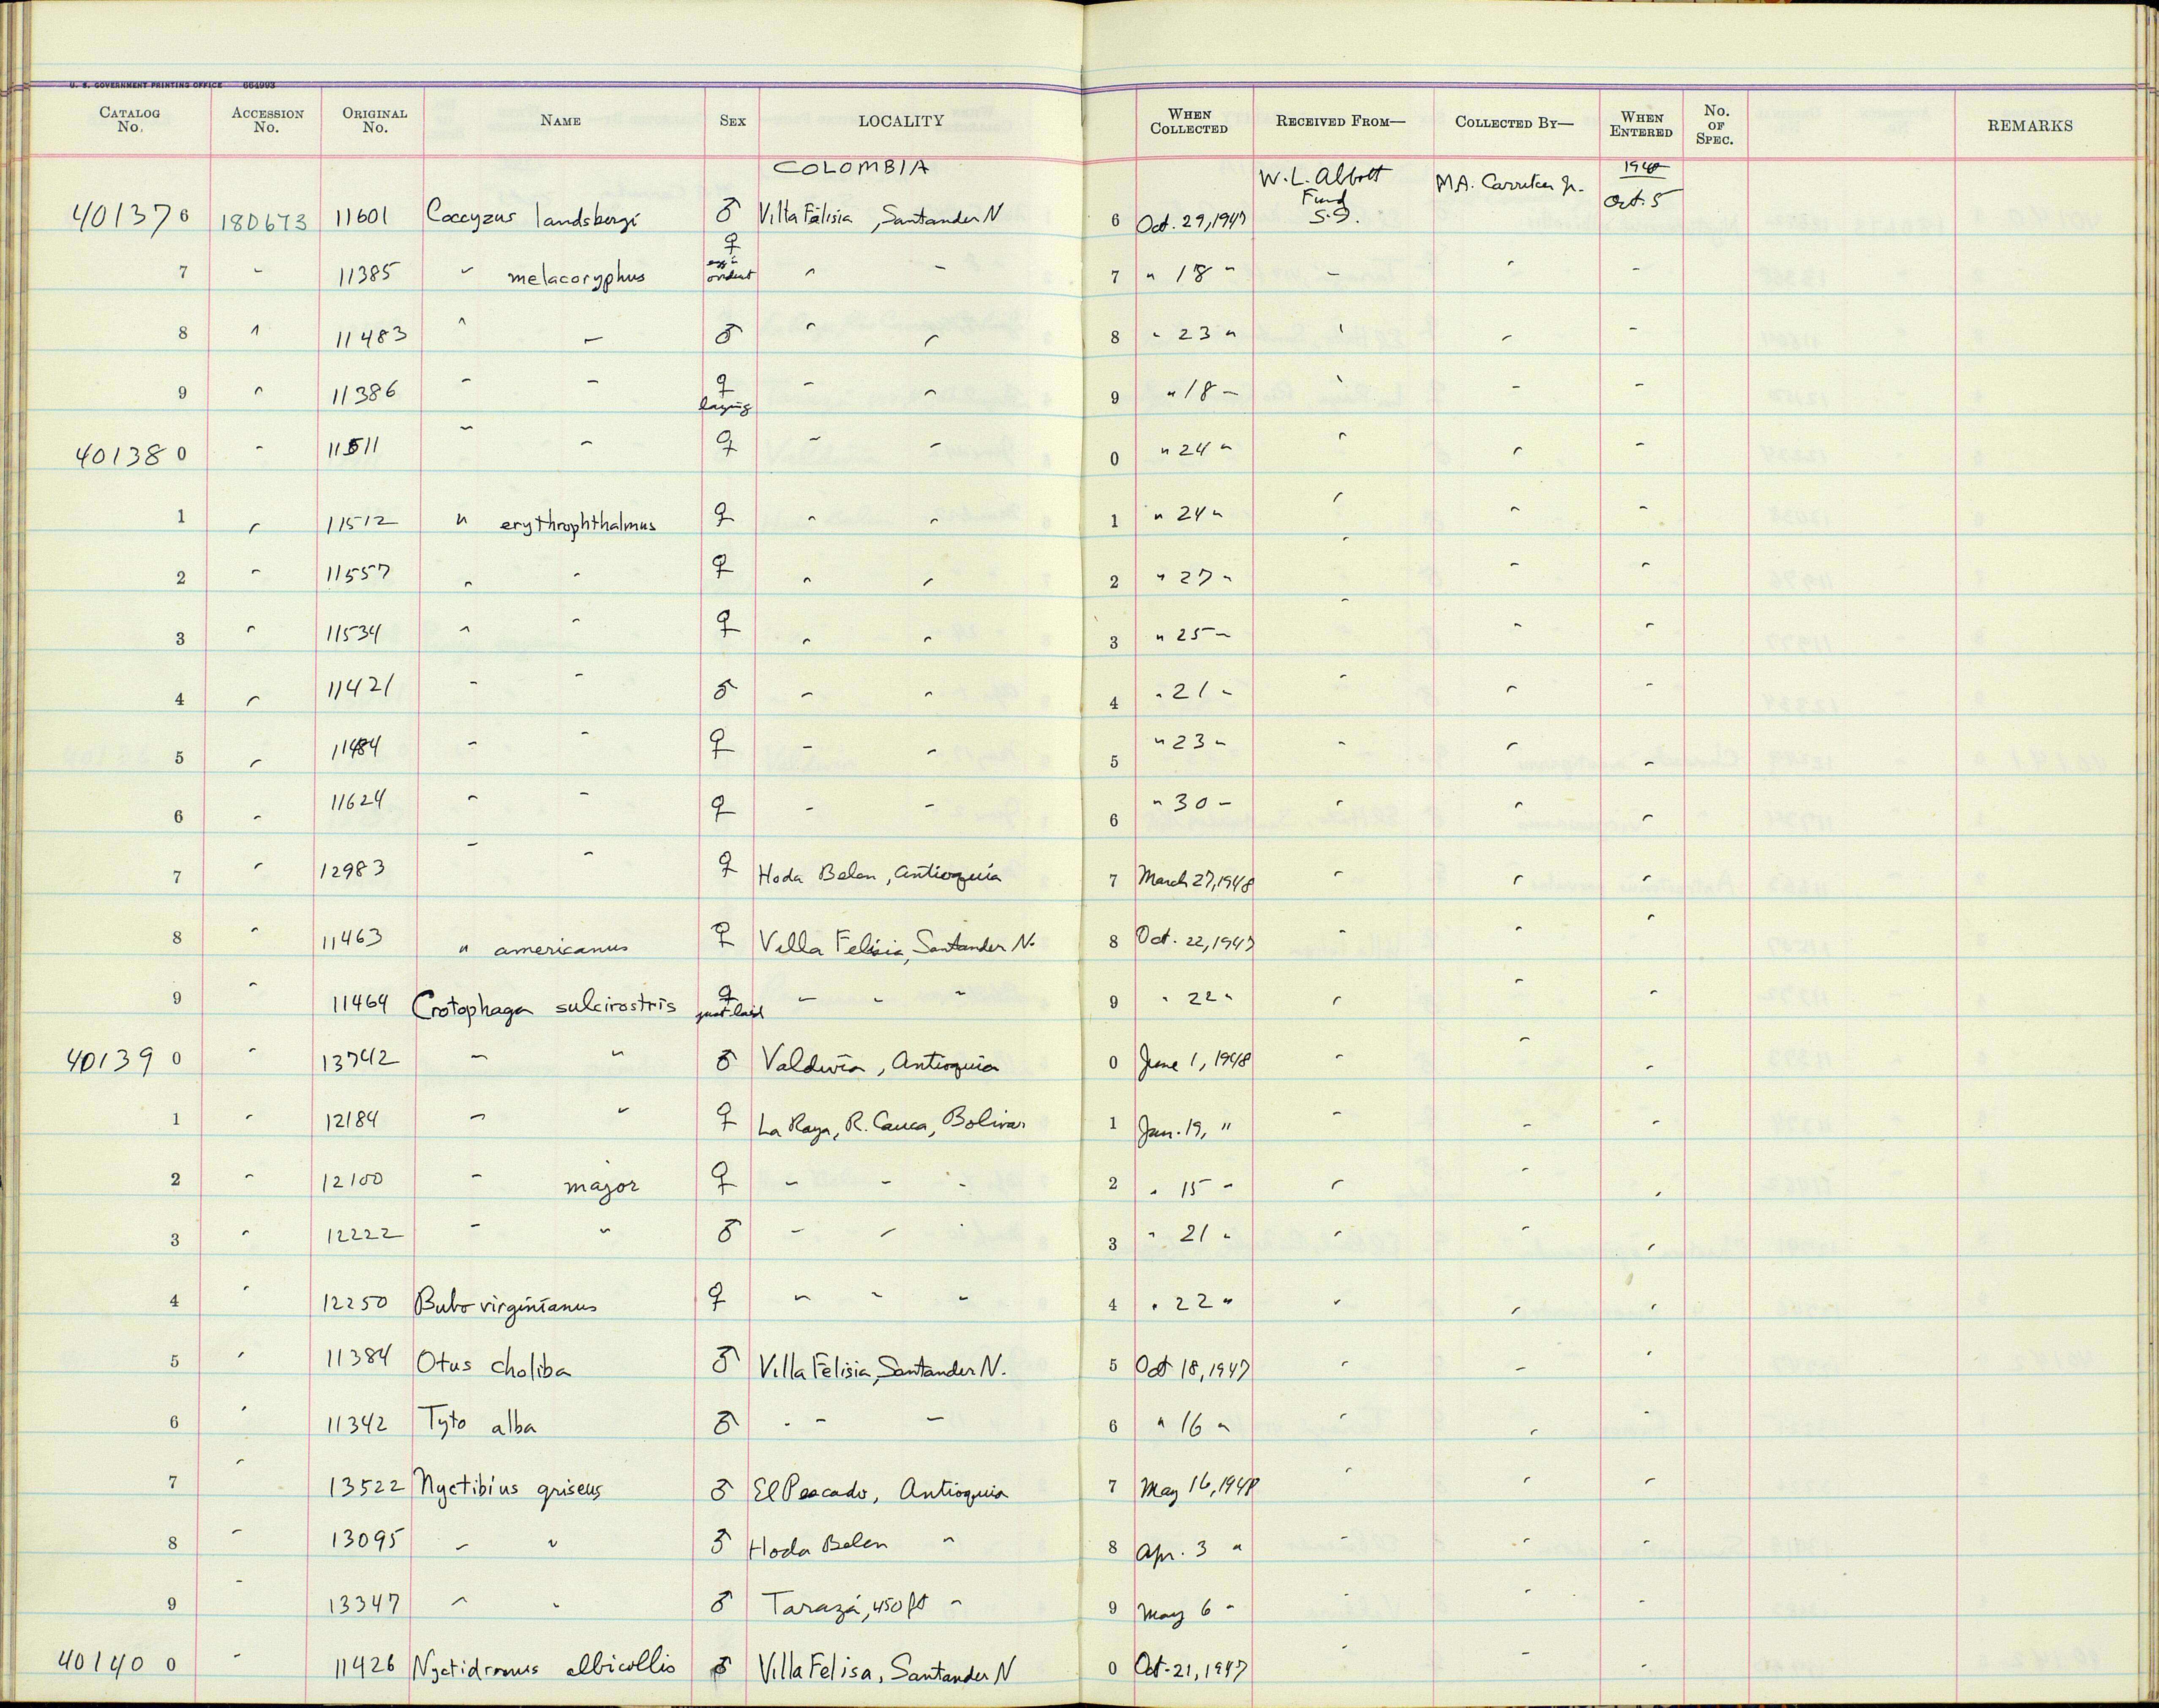 U. S. GOVERNMENT PRINTING OFFICE 664993
CATALOG No. ACCESSION No. ORIGINAL No. NAME SEX LOCALITY WHEN COLLECTED RECEIVED FROM— COLLECTED BY— WHEN ENTERED No. OF SPEC. REMARKS
COLOMBIA W. L. Abbott Fund S.I. M.A. Carriker Jr. 1948 Oct. 5
401376 180673 11601 Coccyzus landsbergi ♂ Villa Felisia, Santander N 6 Oct. 29, 1947
7 " 11385 " melacoryphus ♀ egg in oviduct " " 7 " 18 " " " "
8 " 11483 " " ♂ " " 8 " 23 " " " "
9 " 11386 " " ♀ laying " " 9 " 18 " " " "
401380 " 11511 " " ♀ " " 0 " 24 " " " "
1 " 11512 " erythrophthalmus ♀ " " 1 " 24 " " " "
2 " 11557 " " ♀ " " 2 " 27 " " " "
3 " 11534 " " ♀ " " 3 " 25 " " " "
4 " 11421 " " ♂ " " 4 " 21 " " " "
5 " 11484 " " ♀ " " 5 " 23 " " " "
6 " 11624 " " ♀ " " 6 " 30 " " " "
7 " 12983 " " ♀ Hoda Belen, Antioquia 7 March 27, 1948 " " "
8 " 11463 " americanus ♀ Villa Felisia, Santander N. 8 Oct. 22, 1947 " " "
9 " 11464 Crotophaga sulcirostris ♀ just laid " " " 9 " 22 " " " "
401390 " 13742 " " ♂ Valdivia, Antioquia 0 June 1, 1948 " " "
1 " 12184 " " ♀ La Raya, R. Cauca, Bolivar 1 Jan. 19, " " " "
2 " 12100 " major ♀ " " " 2 " 15 " " " "
3 " 12222 " " ♂ " " " 3 " 21 " " " "
4 " 12250 Bubo virginianus ♀ " " " 4 " 22 " " " "
5 " 11384 Otus choliba ♂ Villa Felisia, Santander N. 5 Oct 18, 1947 " " "
6 " 11342 Tyto alba ♂ " " " 6 " 16 " " " "
7 " 13522 Nyctibius griseus ♂ El Pescado, Antioquia 7 May 16, 1948 " " "
8 " 13095 " " ♂ Hoda Belen " 8 Apr. 3 " " " "
9 " 13347 " " ♂ Tarazá, 450 ft " 9 May 6 " " " "
401400 " 11426 Nyctidromus albicollis ♂ Villa Felisa, Santander N 0 Oct. 21, 1947 " " "